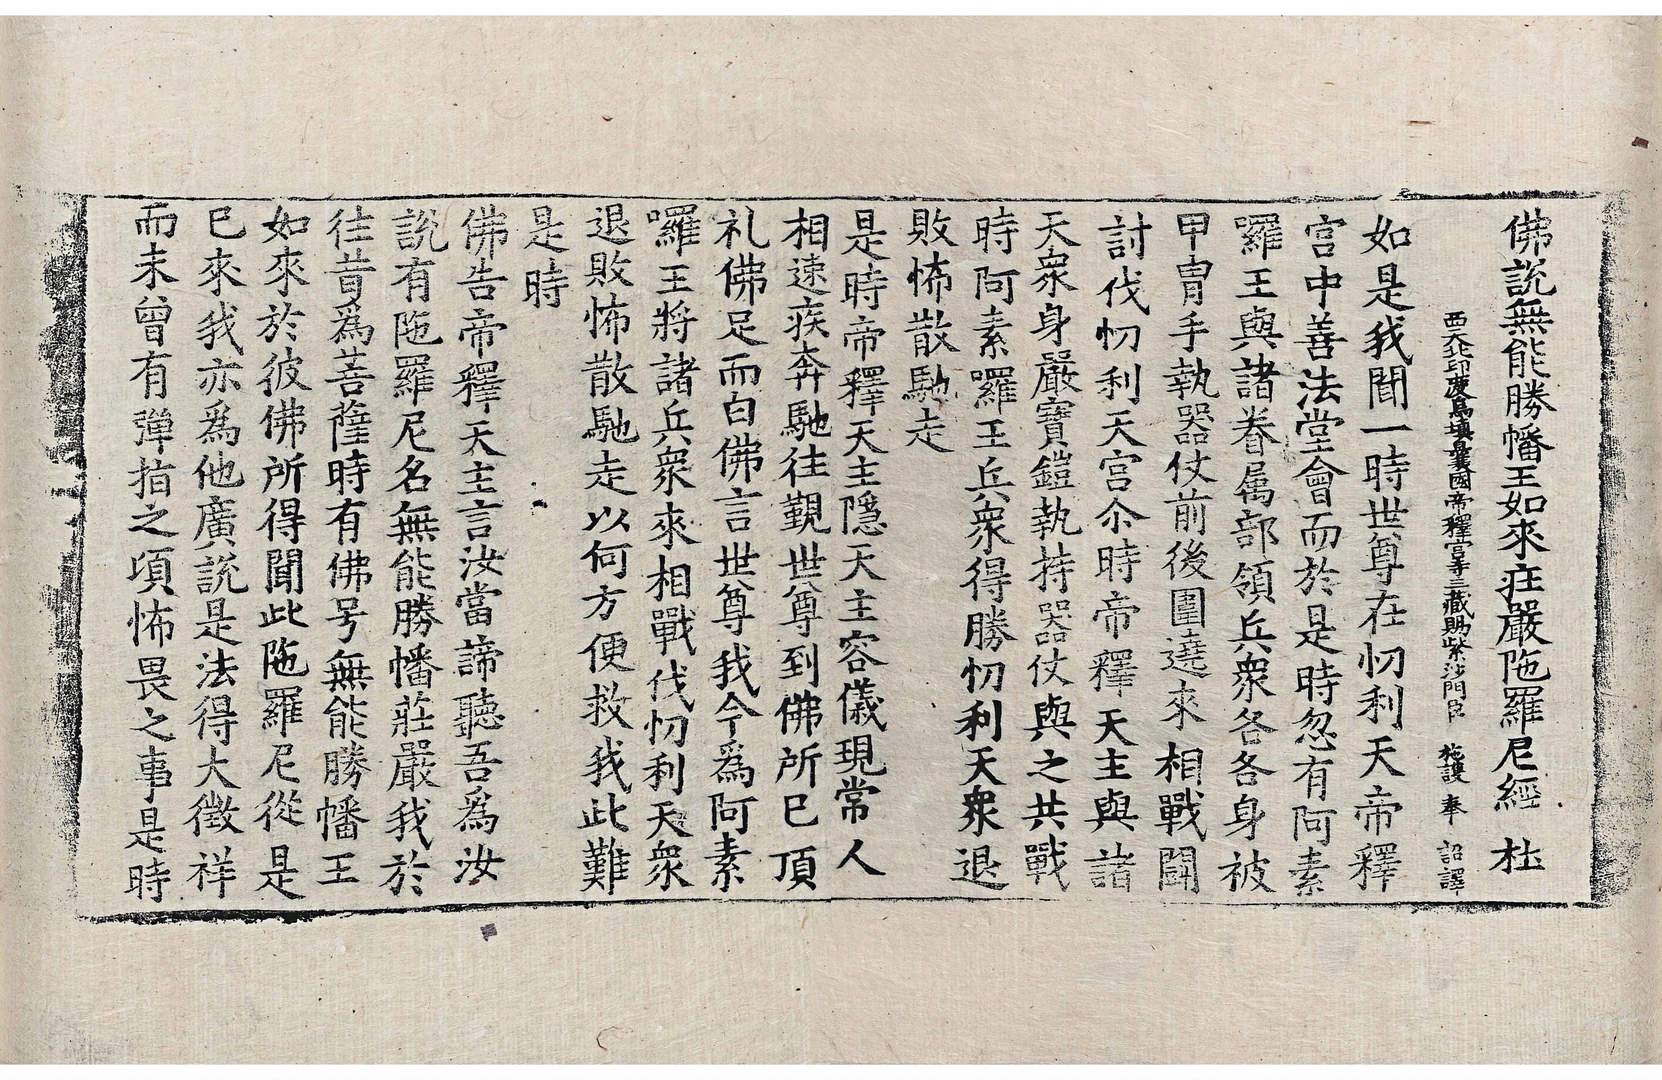 佛說無能勝幡王如來莊嚴陁羅尼經 杜
西天北印度烏填曩國帝釋宮寺三藏賜紫沙門臣 施護 奉 詔譯
如是我聞一時世尊在忉利天帝釋
宮中善法堂會而於是時忽有阿素
囉王與諸眷属部領兵衆各各身被
甲冑手執器仗前後圍遶來相戰鬪
討伐忉利天宮尒時帝釋天主與諸
天衆身嚴寶鎧執持器仗與之共戰
時阿素囉王兵衆得勝忉利天衆退
敗怖散馳走
是時帝釋天主隱天主容儀現常人
相速疾奔馳往覲世尊到佛所已頂
礼佛足而白佛言世尊我今爲阿素
囉王將諸兵衆來相戰伐忉利天衆
退敗怖散馳走以何方便救我此難
是時
佛告帝釋天主言汝當諦聽吾爲汝
說有陁羅尼名無能勝幡莊嚴我於
往昔爲菩薩時有佛号無能勝幡王
如來於彼佛所得聞此陁羅尼從是
已來我亦爲他廣說是法得大徵祥
而未曾有彈指之項怖畏之事是時